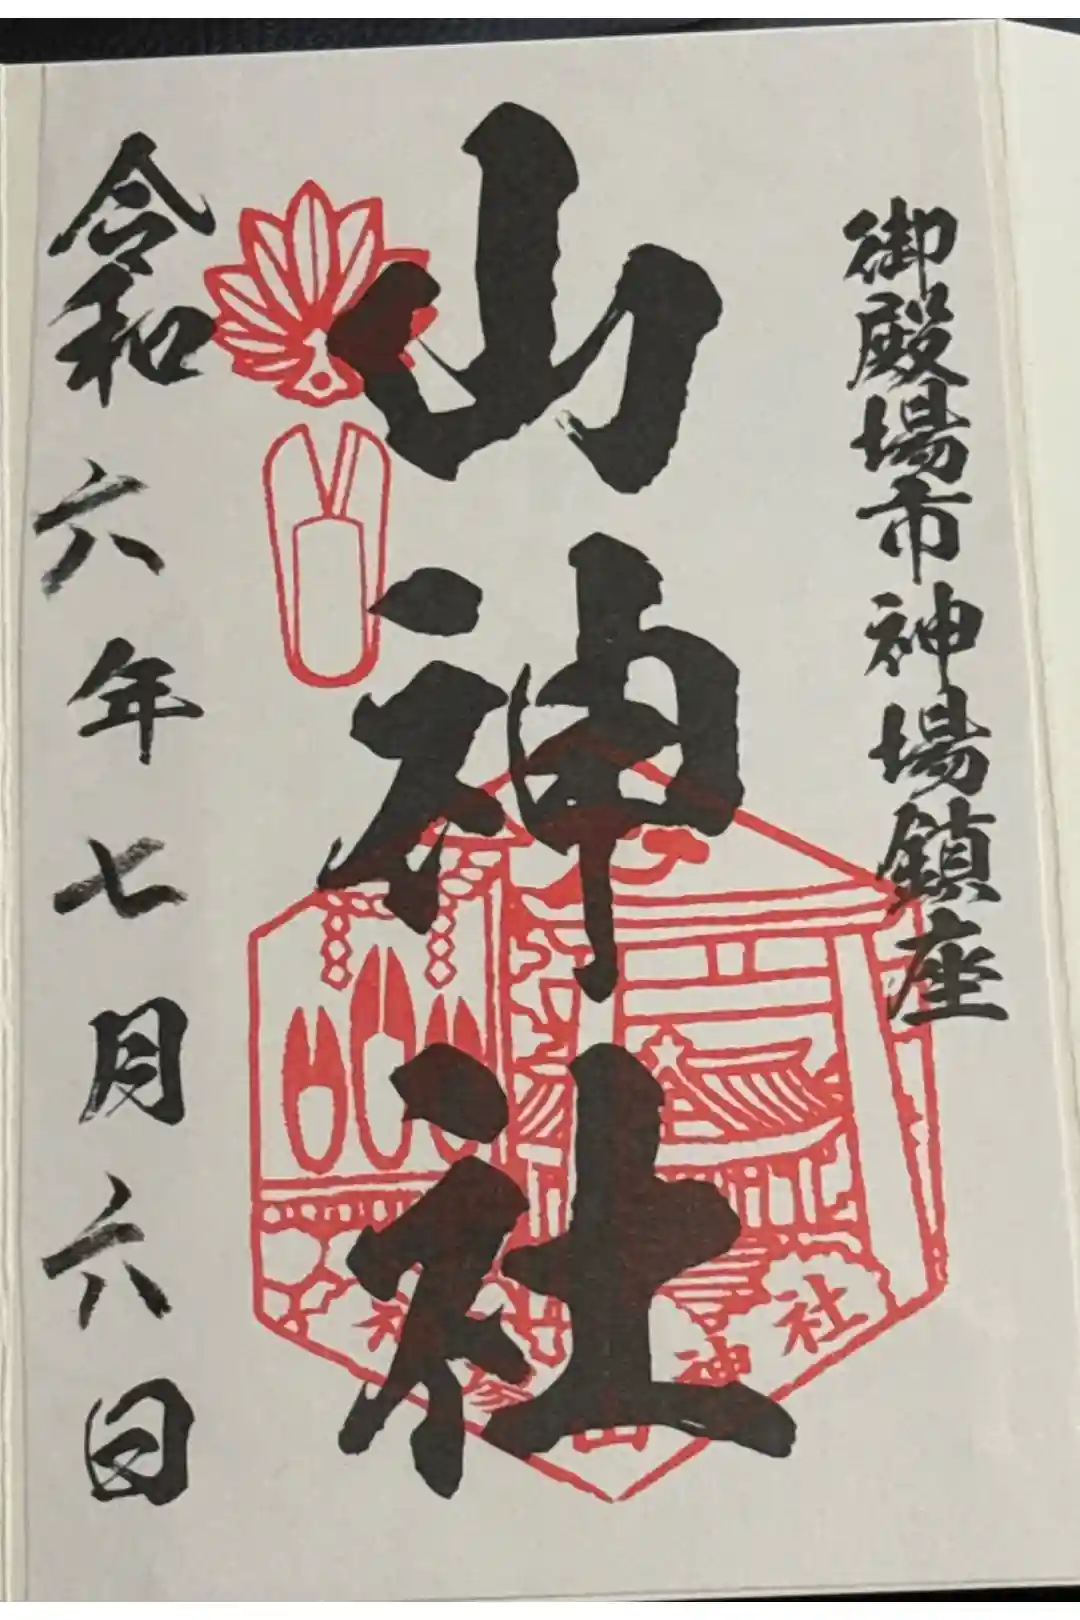 御殿場市神場鎮座
山神社
令和六年七月六日
神場山神社